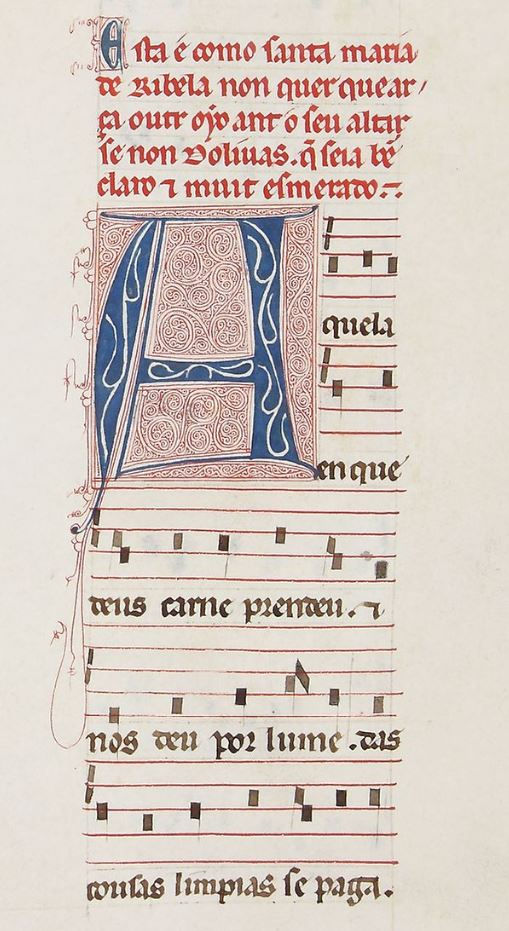 Esta é como santa maria
de Ribela non quer que ar,
ça outr oyo ant o seu altar
se non dolivas. q̃ seia bẽ
claro ⁊ muit esmerado.
Aquela
en que
deus carne prendeu. ⁊
nos deu por lume. das
cousas limpias se paga.